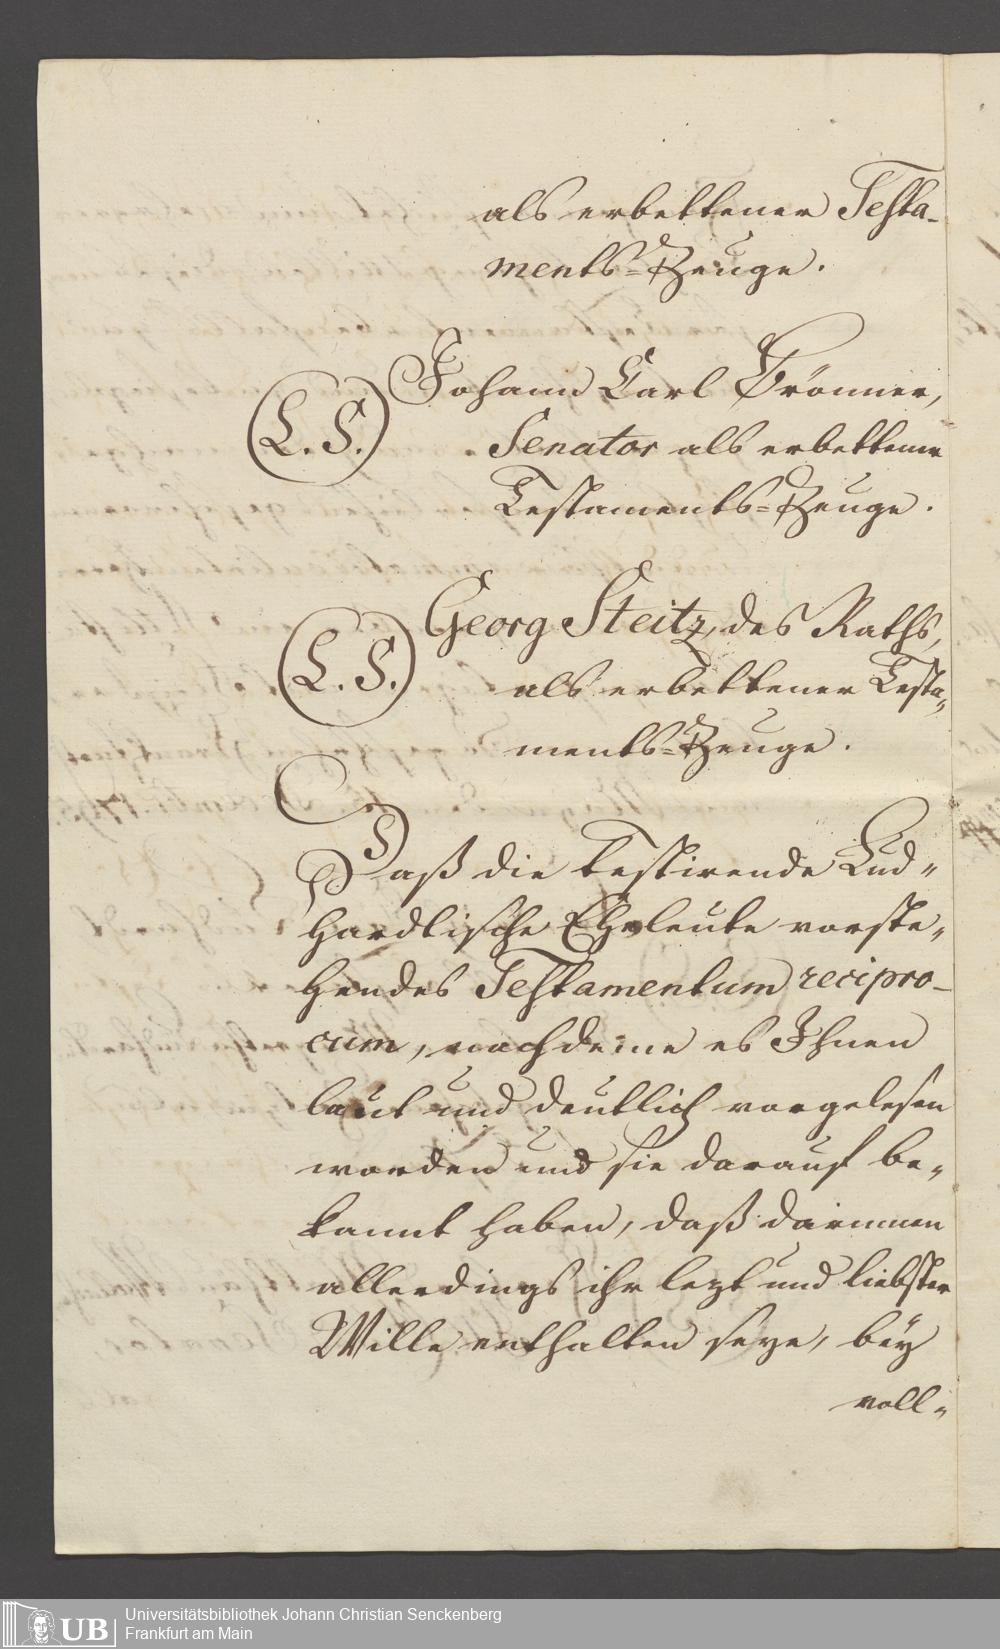 als erbettener Testa-
ments=Zeuge.
Johann Carl Brönner,
(L. S.)
Senator als erbettener
Testaments=Zeuge.
Georg Steitz, des Raths,
(L. S.)
als erbettener Testa=
ments=Zeuge.
Daß die testirende Lind=
hardtische Eheleute vorste=
hendes Testamentum recipro-
cum, nachdeme es Ihnen
laut und deutlich vorgelesen
worden und sie darauf be=
kannt haben, daß darinnen
allerdings ihr lezt und liebster
Wille enthalten seye, bey
voll=
UB
Universitätsbibliothek Johann Christian Senckenberg
Frankfurt am Main